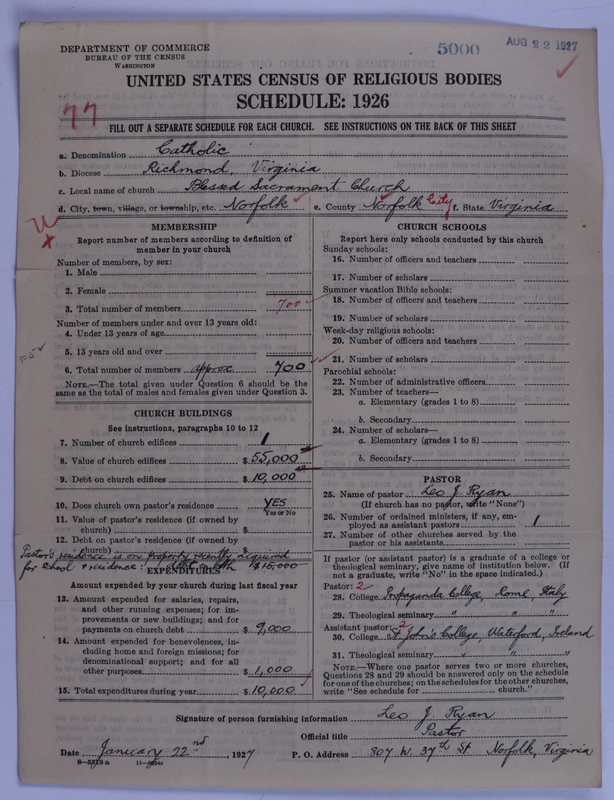 DEPARTMENT OF COMMERCE
BUREAU OF THE CENSUS
WASHINGTON
5000
AUG 22 1927
UNITED STATES CENSUS OF RELIGIOUS BODIES
SCHEDULE: 1926
77
FILL OUT A SEPARATE SCHEDULE FOR EACH CHURCH. SEE INSTRUCTIONS ON THE BACK OF THIS SHEET
a. Denomination Catholic
b. Diocese Richmond, Virginia
c. Local name of church Blessed Sacrament Church
d. City, town, village, or township, etc. Norfolk e. County Norfolk City f. State Virginia
MEMBERSHIP
Report number of members according to definition of
member in your church
Number of members, by sex:
1. Male
2. Female
3. Total number of members 700
Number of members under and over 13 years old:
4. Under 13 years of age
5. 13 years old and over
6. Total number of members approx 700
NOTE.—The total given under Question 6 should be the
same as the total of males and females given under Question 3.
CHURCH BUILDINGS
See instructions, paragraphs 10 to 12
7. Number of church edifices 1
8. Value of church edifices $55,000
9. Debt on church edifices $10,000
10. Does church own pastor's residence YES
Yes or No
11. Value of pastor's residence (if owned by
church) $
12. Debt on pastor's residence (if owned by
church)
Pastor's residence is on property recently acquired
for school & residence: $15,000
EXPENDITURES
Amount expended by your church during last fiscal year
13. Amount expended for salaries, repairs,
and other running expenses; for im-
provements or new buildings; and for
payments on church debt $9,000
14. Amount expended for benevolences, in-
cluding home and foreign missions; for
denominational support; and for all
other purposes $1,000
15. Total expenditures during year $10,000
CHURCH SCHOOLS
Report here only schools conducted by this church
Sunday schools:
16. Number of officers and teachers
17. Number of scholars
Summer vacation Bible schools:
18. Number of officers and teachers
19. Number of scholars
Week-day religious schools:
20. Number of officers and teachers
21. Number of scholars
Parochial schools:
22. Number of administrative officers
23. Number of teachers—
a. Elementary (grades 1 to 8)
b. Secondary
24. Number of scholars—
a. Elementary (grades 1 to 8)
b. Secondary
PASTOR
25. Name of pastor Leo J Ryan
(If church has no pastor, write "None")
26. Number of ordained ministers, if any, em-
ployed as assistant pastors 1
27. Number of other churches served by the
pastor or his assistants
If pastor (or assistant pastor) is a graduate of a college or
theological seminary, give name of institution below. (If
not a graduate, write "No" in the space indicated.)
Pastor: 2
28. College Propaganda College, Rome, Italy
29. Theological seminary " " "
Assistant pastor: 2
30. College St John's College, Waterford, Ireland
31. Theological seminary " "
NOTE.—Where one pastor serves two or more churches,
Questions 28 and 29 should be answered only on the schedule
for one of the churches; on the schedules for the other churches,
write "See schedule for church."
Signature of person furnishing information Leo J. Ryan
Official title Pastor
Date January 22nd, 1927 P. O. Address 807 W. 37th St Norfolk, Virginia
8—5518a